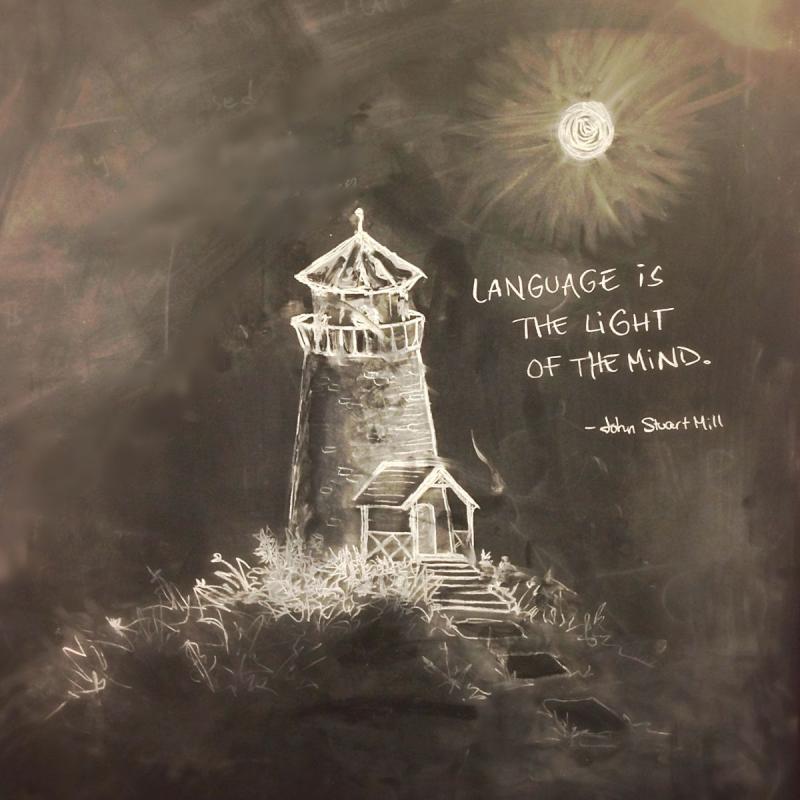 LANGUAGE iS
THE LiGHT
OF THE MiND.
- John Stuart Mill